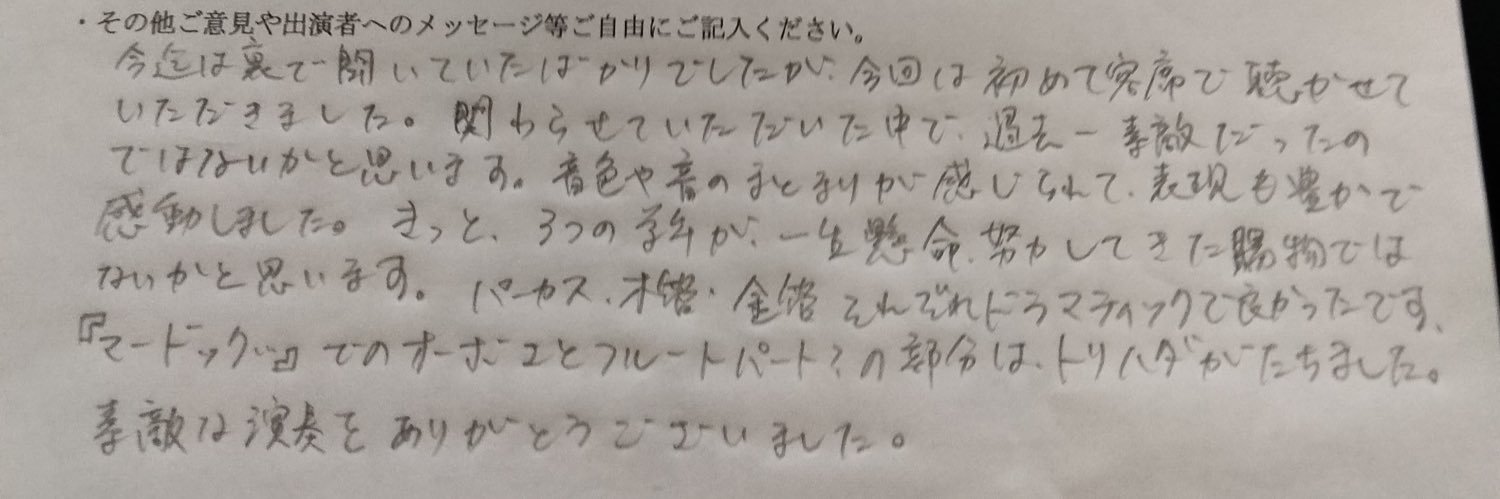 ・その他ご意見や出演者へのメッセージ等ご自由にご記入ください。
今迄は裏で聞いていたばかりでしたが、今回は初めて客席で聴かせて
いただきました。関わらせていただいた中で、過去一素敵だったの
ではないかと思います。音色や音のまとまりが感じられて、表現も豊かで
感動しました。きっと、3つの学年が、一生懸命、努力してきた賜物では
ないかと思います。パーカス、木管・金管それぞれドラマティックで良かったです、
『マードック…』でのオーボエとフルートパート?の部分は、トリハダがたちました。
素敵な演奏をありがとうございました。